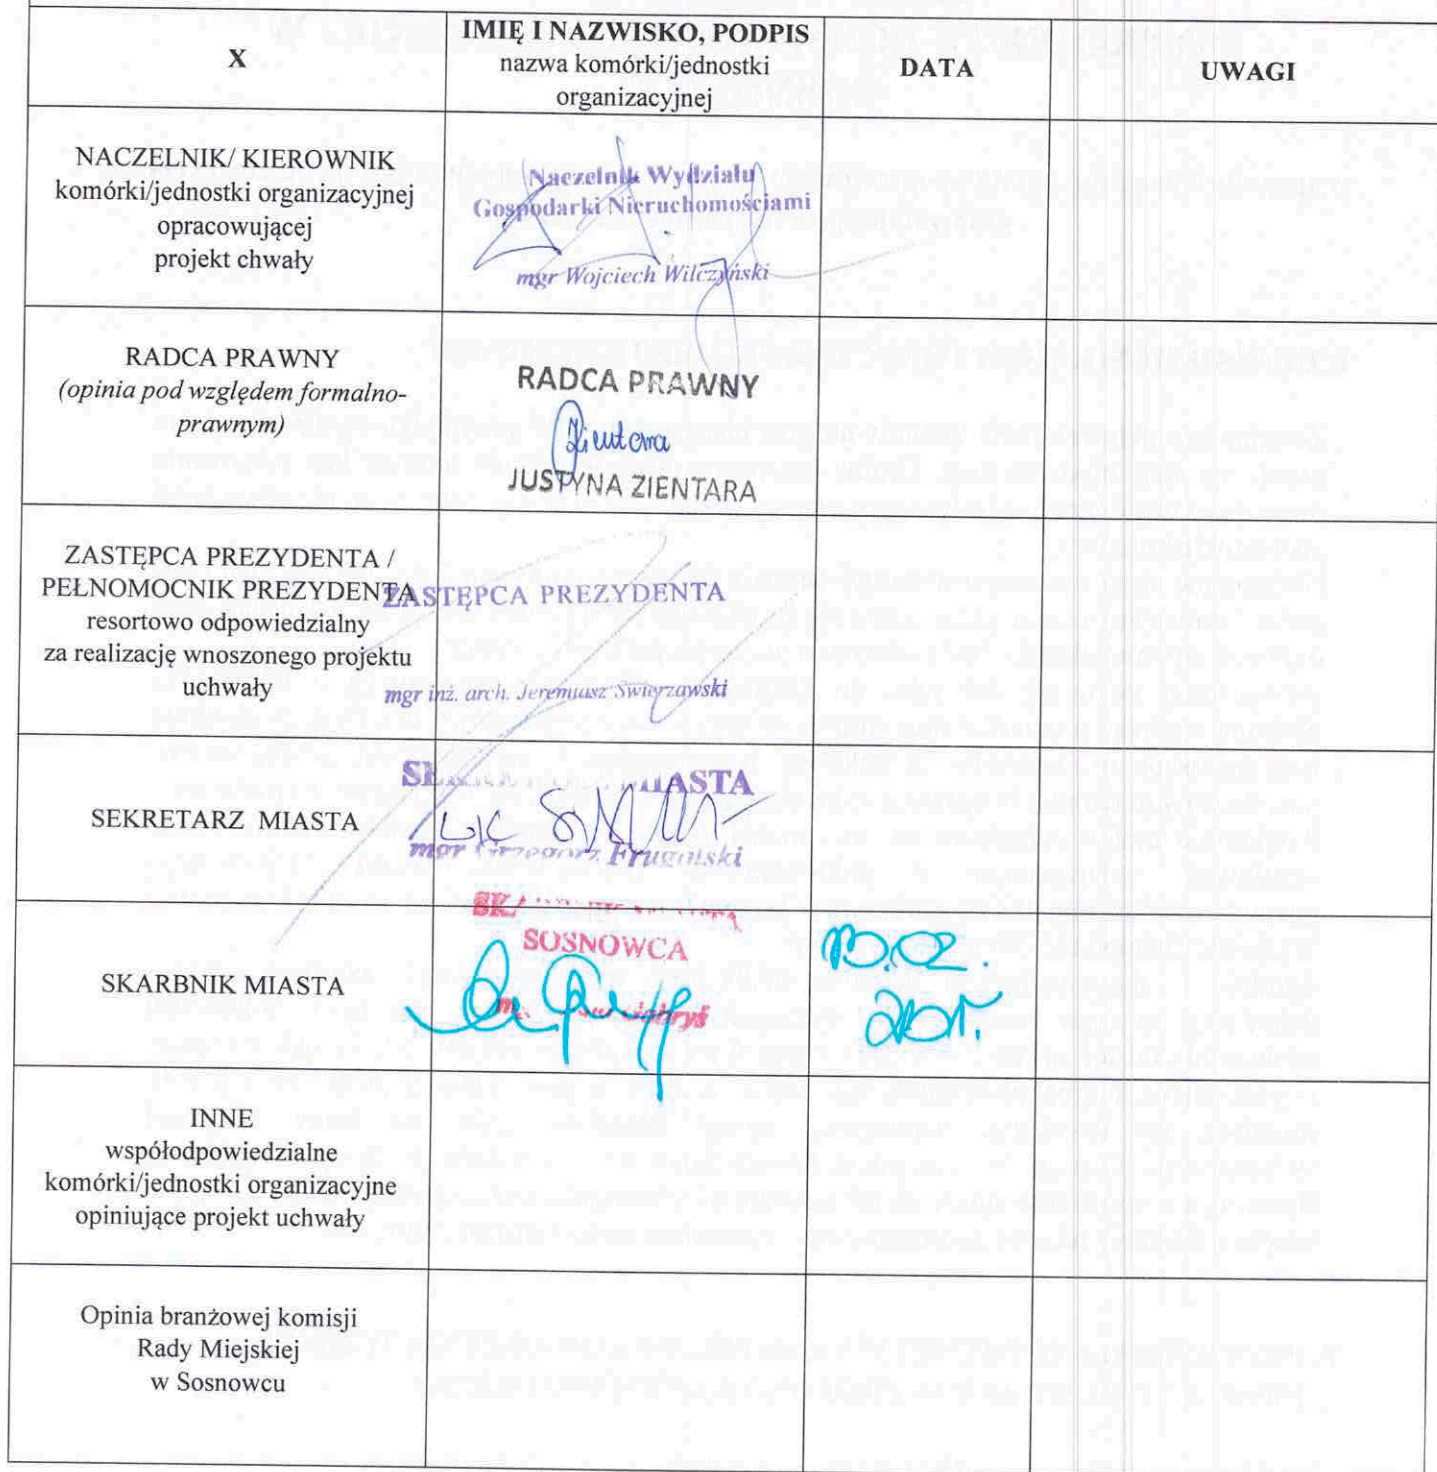 X
IMIĘ I NAZWISKO, PODPIS
nazwa komórki/jednostki
organizacyjnej
DATA
UWAGI
NACZELNIK/ KIEROWNIK
komórki/jednostki organizacyjnej
opracowującej
projekt chwały
Naczelnik Wydziału
Gospodarki Nieruchomościami
mgr Wojciech Wilczyński
RADCA PRAWNY
(opinia pod względem formalno-
prawnym)
RADCA PRAWNY
Zientara
JUSTYNA ZIENTARA
ZASTĘPCA PREZYDENTA /
PEŁNOMOCNIK PREZYDENTA
resortowo odpowiedzialny
za realizację wnoszonego projektu
uchwały
ZASTĘPCA PREZYDENTA
mgr inż. arch. Jeremiasz Świerzawski
SEKRETARZ MIASTA
MIASTA
mgr Grzegorz Frugalski
SKARBNIK MIASTA
SOSNOWCA
INNE
współodpowiedzialne
komórki/jednostki organizacyjne
opiniujące projekt uchwały
Opinia branżowej komisji
Rady Miejskiej
w Sosnowcu